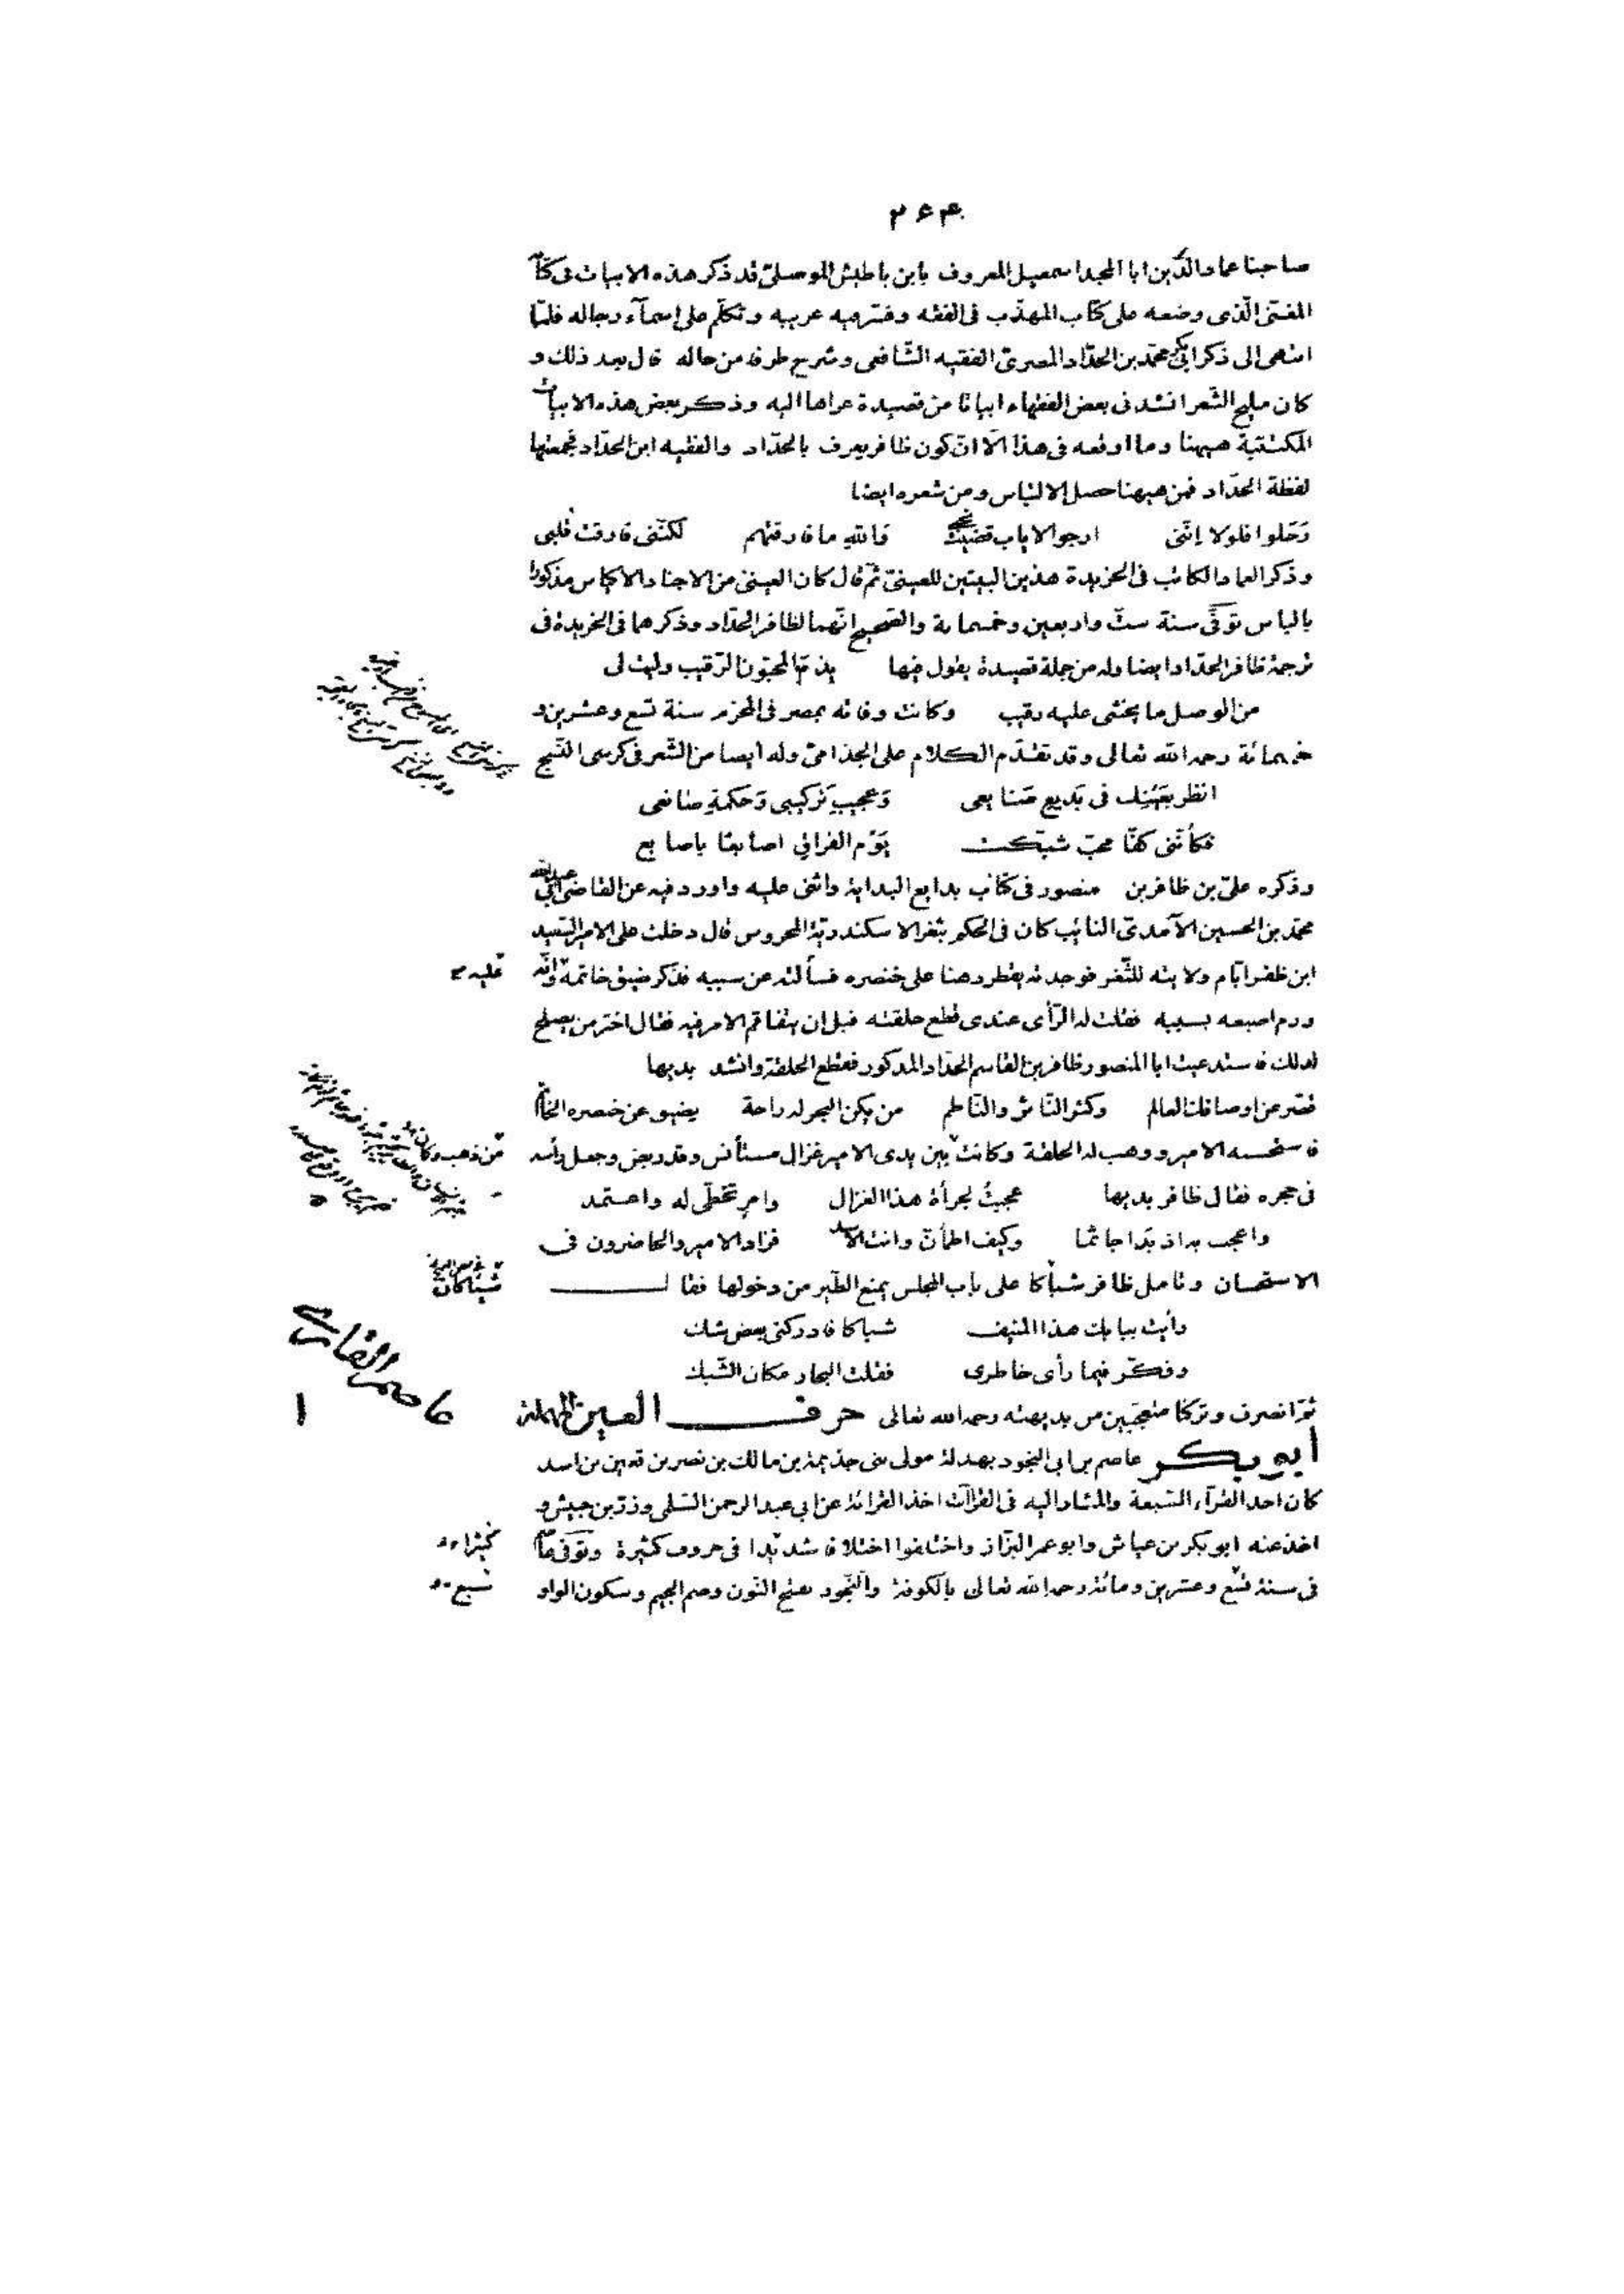 ۲۶۳
صاحبنا عماد الدّين ابا المجد اسمعيل المعروف بابن باطيش الموصلىّ قد ذكر هذه الابيات فى كتابه
المغنى الّذى وضعه على كتاب المهذّب فى الفقه وفسّر فيه غريبه وتكلّم على اسمآء رجاله فلمّا
انتهى الى ذكر ابى بكر محمّد بن الحدّاد المصرىّ الفقيه الشّافعى وشرح طرفا من حاله قال بعد ذلك و
كان مليح الشّعر انشدنى بعض الفقهاء ابياتا من قصيدة عزاها اليه وذكر بعض هذه الابيات
المكتتبة هيهنا وما اوقعه فى هذا الّا انّ كون ظافر يعرف بالحدّاد والفقيه ابن الحدّاد فجمعتها
لفظة الحدّاد فمن هيهنا حصل الالتباس ومن شعره ايضا
رَحَلوا فلولا اِنّنى ارجو الاياب قضيت نحبى والله ما فارقتهم لكنّنى فارقت قلبى
وذكر العماد الكاتب فى الخريدة هذين البيتين للعينىّ ثمّ قال كان العينىّ من الاجناد الاكياس مذكورا
بالباس توفّى سنة ستّ واربعين وخمسماية والصّحيح انّهما لظافر الحدّاد وذكرهما فى الخريدة فى
ترجمة ظافر الحدّاد ايضا وله من جملة قصيدة يقول فيها يذمّ المحبّون الرّقيب وليت لى
من الوصل ما يخشى عليه رقيب وكانت وفاته بمصر فى المحرّم سنة تسع وعشرين و
خمسمائة رحمه الله تعالى وقد تقدّم الكلام على الجذامىّ وله ايضا من الشّعر فى كرسى النّسج
انظر بعَينِك فى بَديعِ صَنايعى وَعجيبِ تَركيبى وَحكمةِ صانعى
فكأنّنى كفّا محبّ شبّكت يَوْم الفراقِ اصابعًا باصابع
وذكره علىّ بن ظافر بن منصور فى كتاب بدايع البداية واثنى عليه واورد فيه عن القاضى ابى عبد الله
محمّد بن الحسين الآمدىّ النائب كان فى الحكم بثغر الاسكندريّة المحروس قال دخلت على الامير السّعيد
ابن ظفر ايّام ولايته للثّغر فوجدته يقطر دهنا على خنصره فسألته عن سببه فذكر ضيق خاتمه وانّه عليه
ورم اصبعه بسببه فقلت له الرّأى عندى قطع حلقته قبل ان يتفاقم الامر فيه فقال اختر من يصلح
لذلك فاستدعيت ابا المنصور ظافر بن القاسم الحدّاد المذكور فقطع الحلقة وانشد بديها
قصّر عن اوصافك العالم وكثر النّاثر والنّاظم من يكن البحر له راحة يضيق عن خنصره الخاتم
فاستحسنه الامير ووهب له الحلقة وكانت بين يدى الامير غزال مستأنس وقد ربض وجعل رأسه من ذهب وكان
فى حجره فقال ظافر بديها عجبتُ لجرأة هذا الغزال وامرٍ تخطّى له واعتمد
واعجب به اذ بَدا جاثما وكيف اطمأنّ وانت الاسد فزاد الامير والحاضرون فى
الاستحسان وتامل ظافر شباكا على باب المجلس يمنع الطّير من دخولها فقال شبّاكان
رأيت ببابك هذا المنيف شباكا فادركنى بعض شك
وفكّر فيما رأى خاطرى فقلت البحار مكان الشّبك
ثمّ انصرف وتركنا متعجّبين من بديهته رحمه الله تعالى حرف العين المهملة عاصم القارى
ابو بكر عاصم بن ابى النجود بهدلة مولى بنى جذيمة بن مالك بن نصر بن قعين بن اسد ١
كان احد القرّآء السّبعة والمشار اليه فى القرآآت اخذ القرائة عن ابى عبد الرحمن السّلمى وزرّ بن حبيش و
اخذ عنه ابو بكر بن عياش وابو عمر البزّاز واختلفوا اختلافا شديدا فى حروف كثيرة وتوفّى عاصم كثيرا
فى سنة تسع وعشرين ومائة رحمه الله تعالى بالكوفة والنّجود بفتح النّون وضم الجيم وسكون الواو سبع